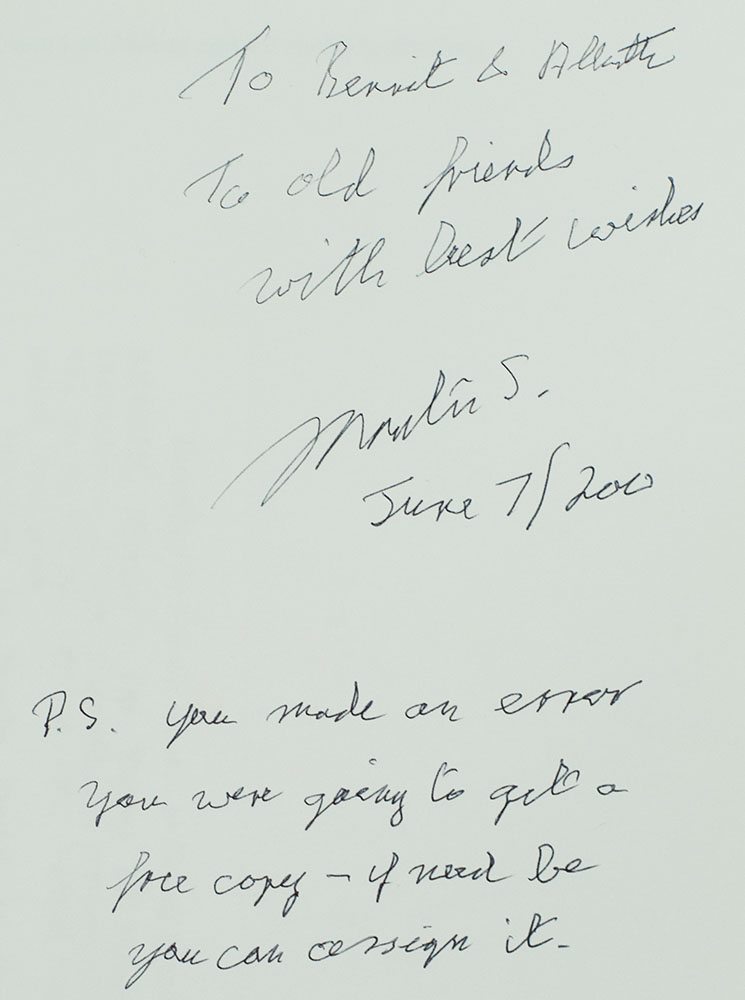 To Benoit & Aliette
To old friends
with best wishes
Martin S.
June 7/200
P.S. you made an error
you were going to get a
free copy – if need be
you can assign it.